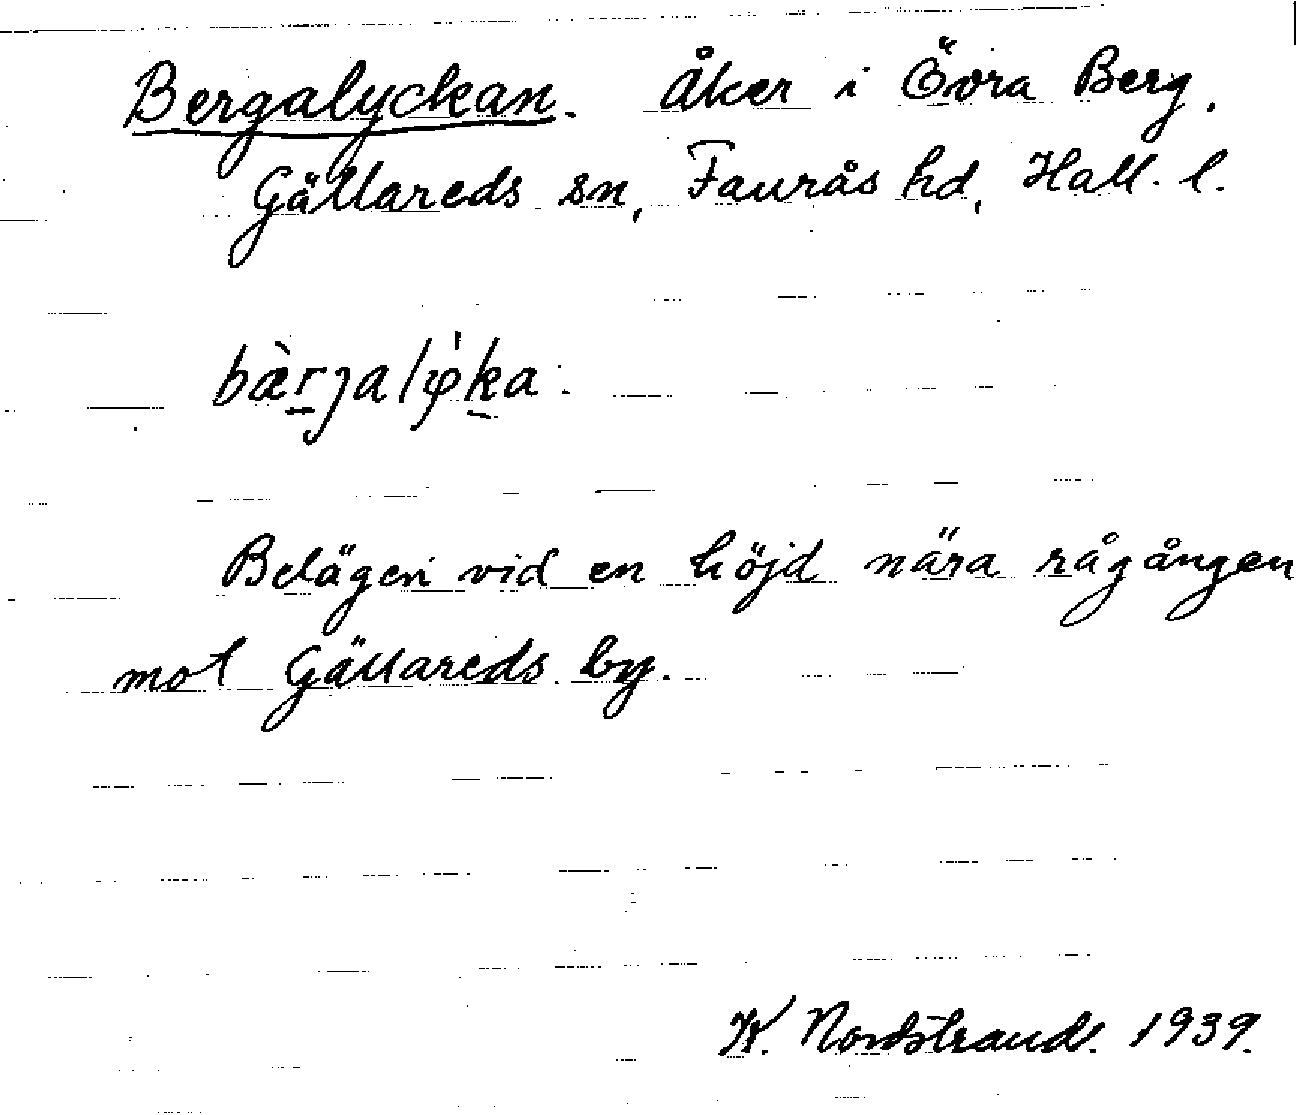 Bergalyckan. Åker i Övra Berg,
Gällareds sn, Faurås hd, Hall. l.
bæ̀r̠jalφ̍k̠a.
Belägen vid en höjd nära rågången
mot Gällareds by.
K. Nordstrand. 1939.